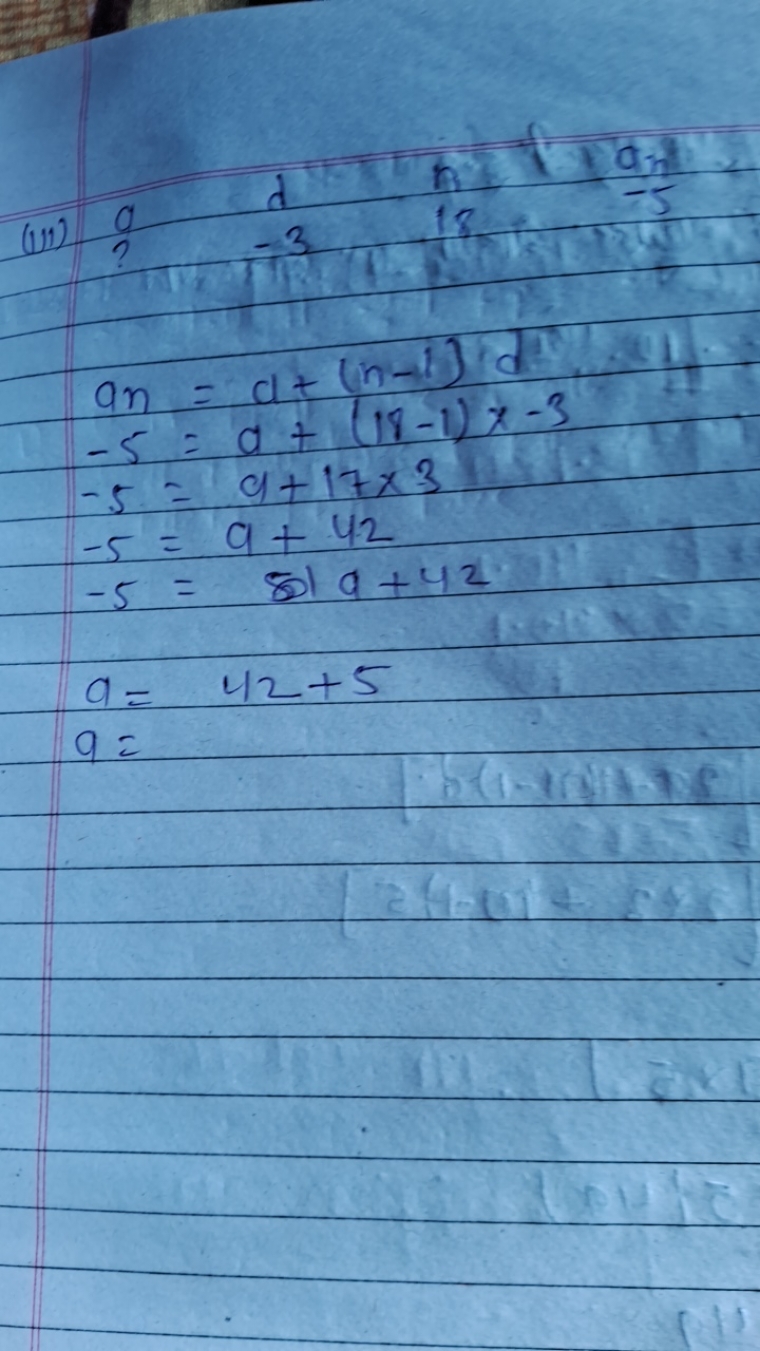 (iii) a d n an
? -3 18 -5
an = a + (n-1) d
-5 = a + (18-1) x -3
-5 = a + 17 x 3
-5 = a + 42
-5 = a + 42
a = 42 + 5
a =